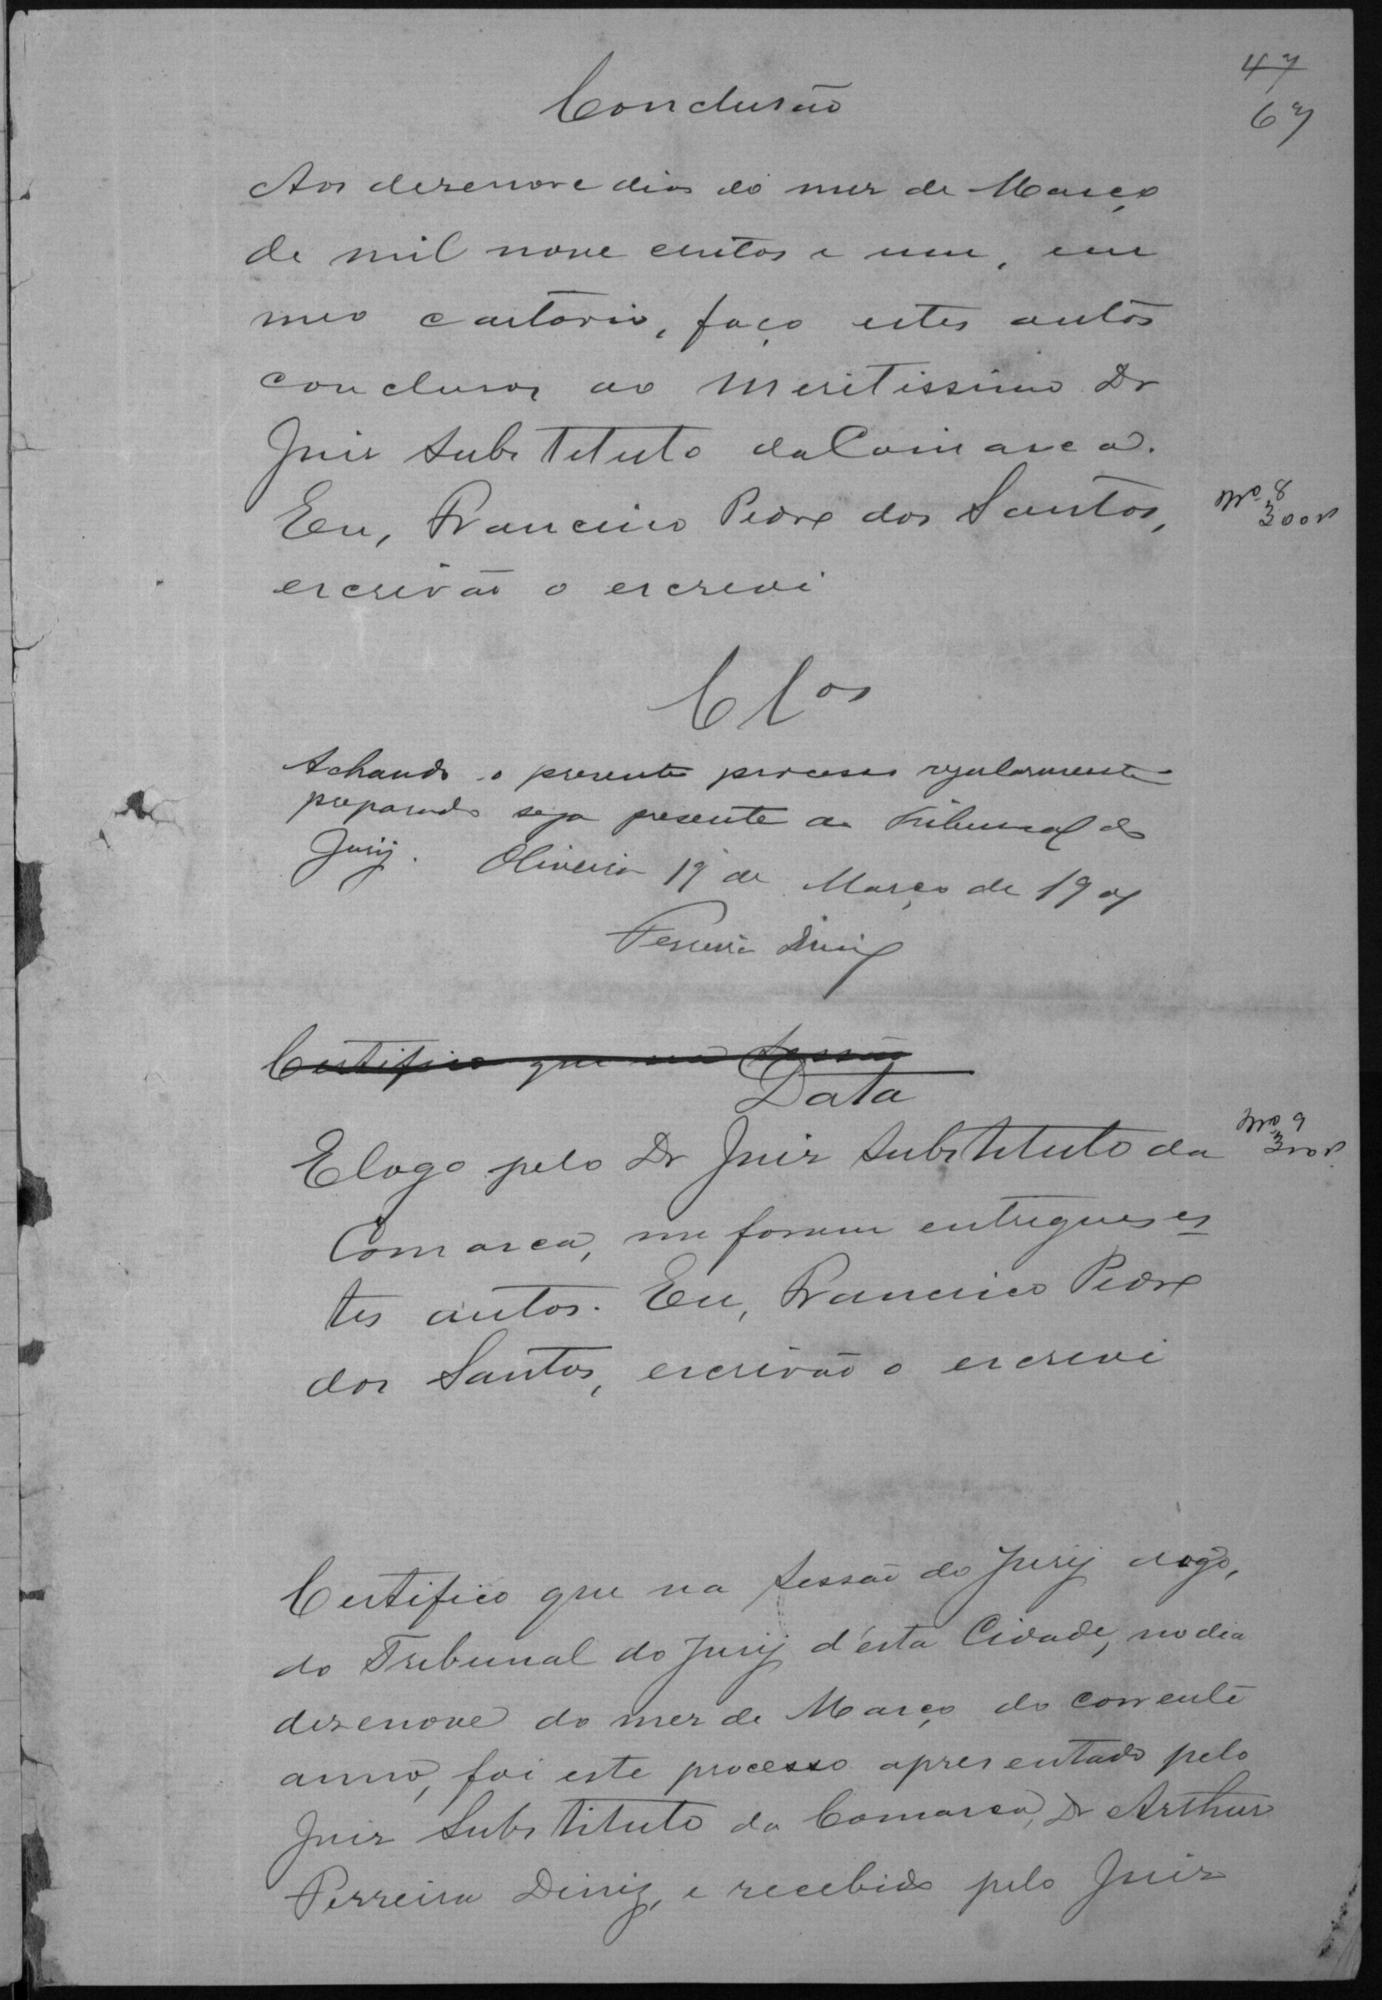 47
67
Conclusão
Aos desenove dias do mez de Março
de mil nove centos e um, em
meo cartorio, faço estes autos
conclusos ao Meritissimo Dr
Juiz Substituto da Comarca.
Eu, Francisco Pedro dos Santos,
escrivão o escrevi
Nº 8
300rs
Clos
Achando o presente processo regularmente
preparado seja presente ao Tribunal do
Jury. Oliveira 19 de Março de 1901
Ferreira Diniz
Certifico que na sessão
Data
E logo pelo Dr Juiz Substituto da
Nº 9
300rs
Comarca, me foram entregues es
tes autos. Eu, Francisco Pedro
dos Santos, escrivão o escrevi
Certifico que na sessão do Jury digo,
do Tribunal do Jury d'esta Cidade, no dia
dezenove do mez de Março do corrente
anno, foi este processo apresentado pelo
Juiz Substituto da Comarca, Dr Arthur
Ferreira Diniz, e recebido pelo Juiz